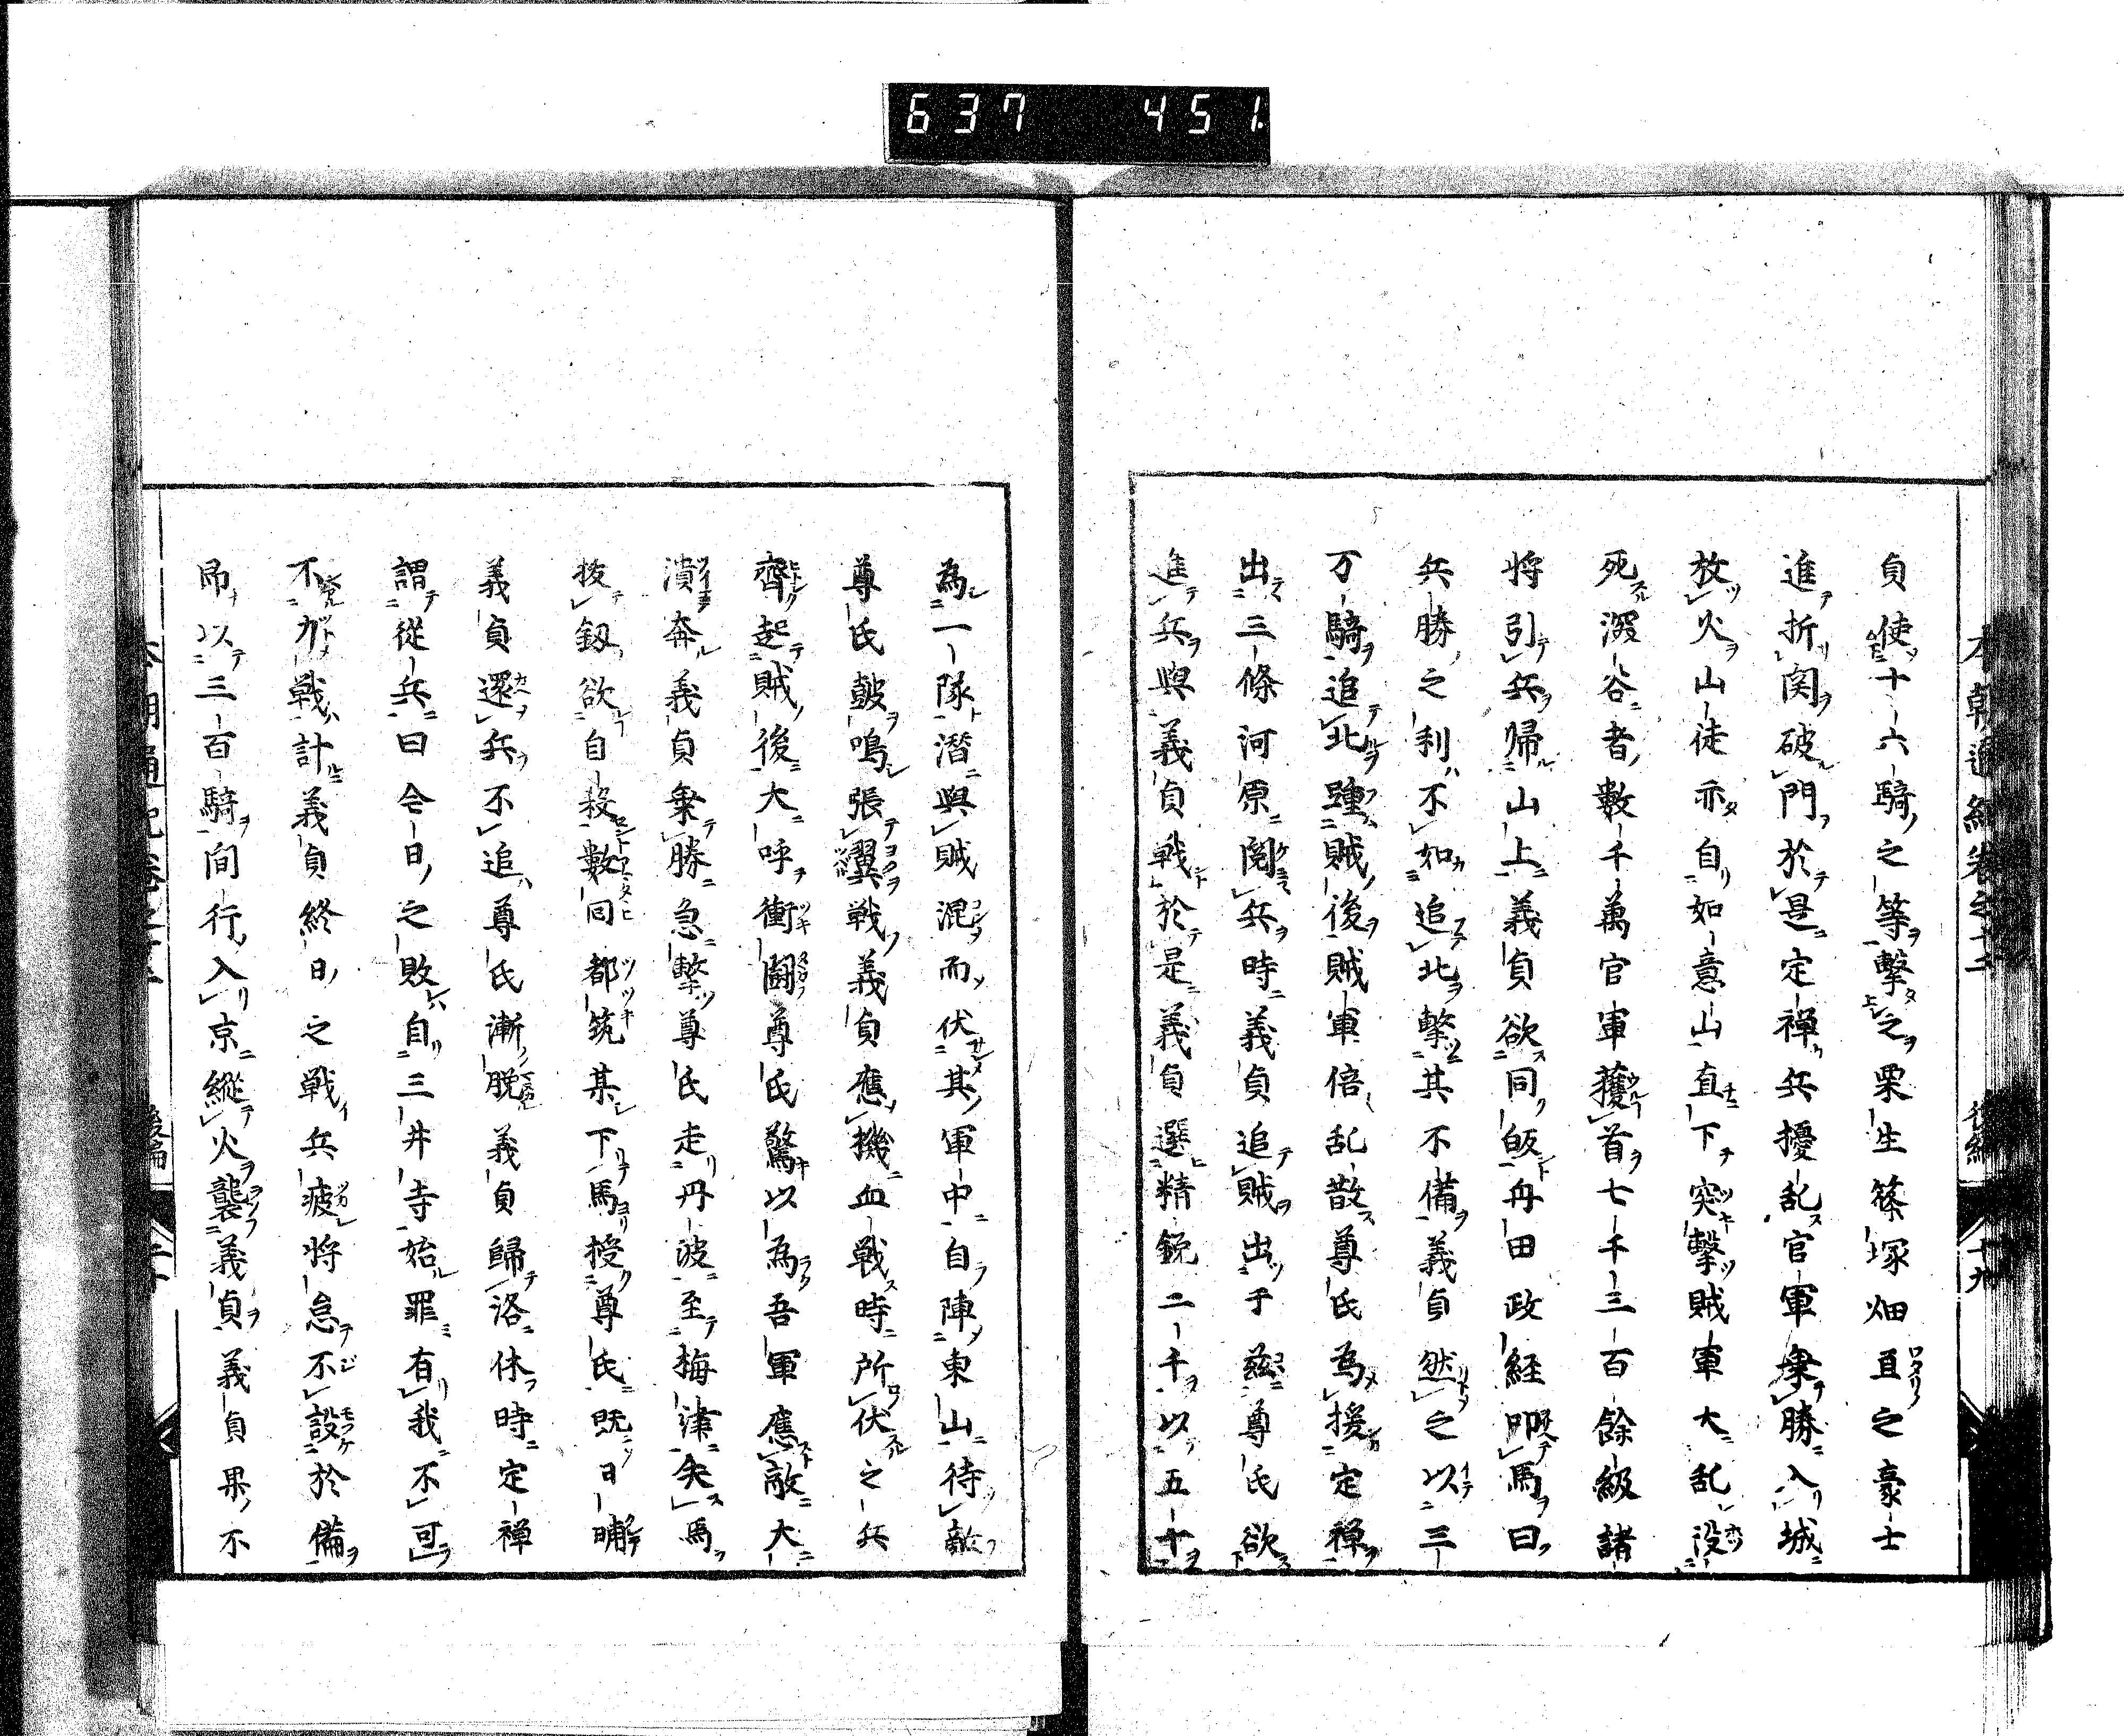 637 451
貞使十六騎之等擊之栗生篠塚畑亘之豪士
進折関破門於是定禅兵擾乱官軍乗勝入城
放火山徒亦自如意山直下突擊賊軍大乱没
死深谷者数千萬官軍獲首七千三百餘級諸
将引兵帰山上義貞欲同皈舟田政経叩馬曰
兵勝之利不如追北擊其不備義貞然之以三
万騎追北踵賊後賊軍倍乱散尊氏為援定禅
出三條河原閲兵時義貞追賊出于茲尊氏欲
進兵與義貞戦於是義貞選精鋭二千以五十
為一隊潜與賊混而伏其軍中自陣東山待敵
尊氏鼓鳴張翼戦義貞應機血戦時所伏之兵
齊起賊後大呼衝闘尊氏驚以為吾軍應敵大
潰奔義貞乗勝急擊尊氏走丹波至梅津失馬
抜釼欲自殺数囘都筑某下馬授尊氏既日晡
義貞還兵不追尊氏漸脱義貞歸洛休時定禅
謂從兵曰今日之敗自三井寺始罪有我不可
不力戦計義貞終日之戦兵疲将怠不設於備
帰以三百騎間行入京縦火襲義貞義貞果不
本朝通紀巻之十二 後編 十九